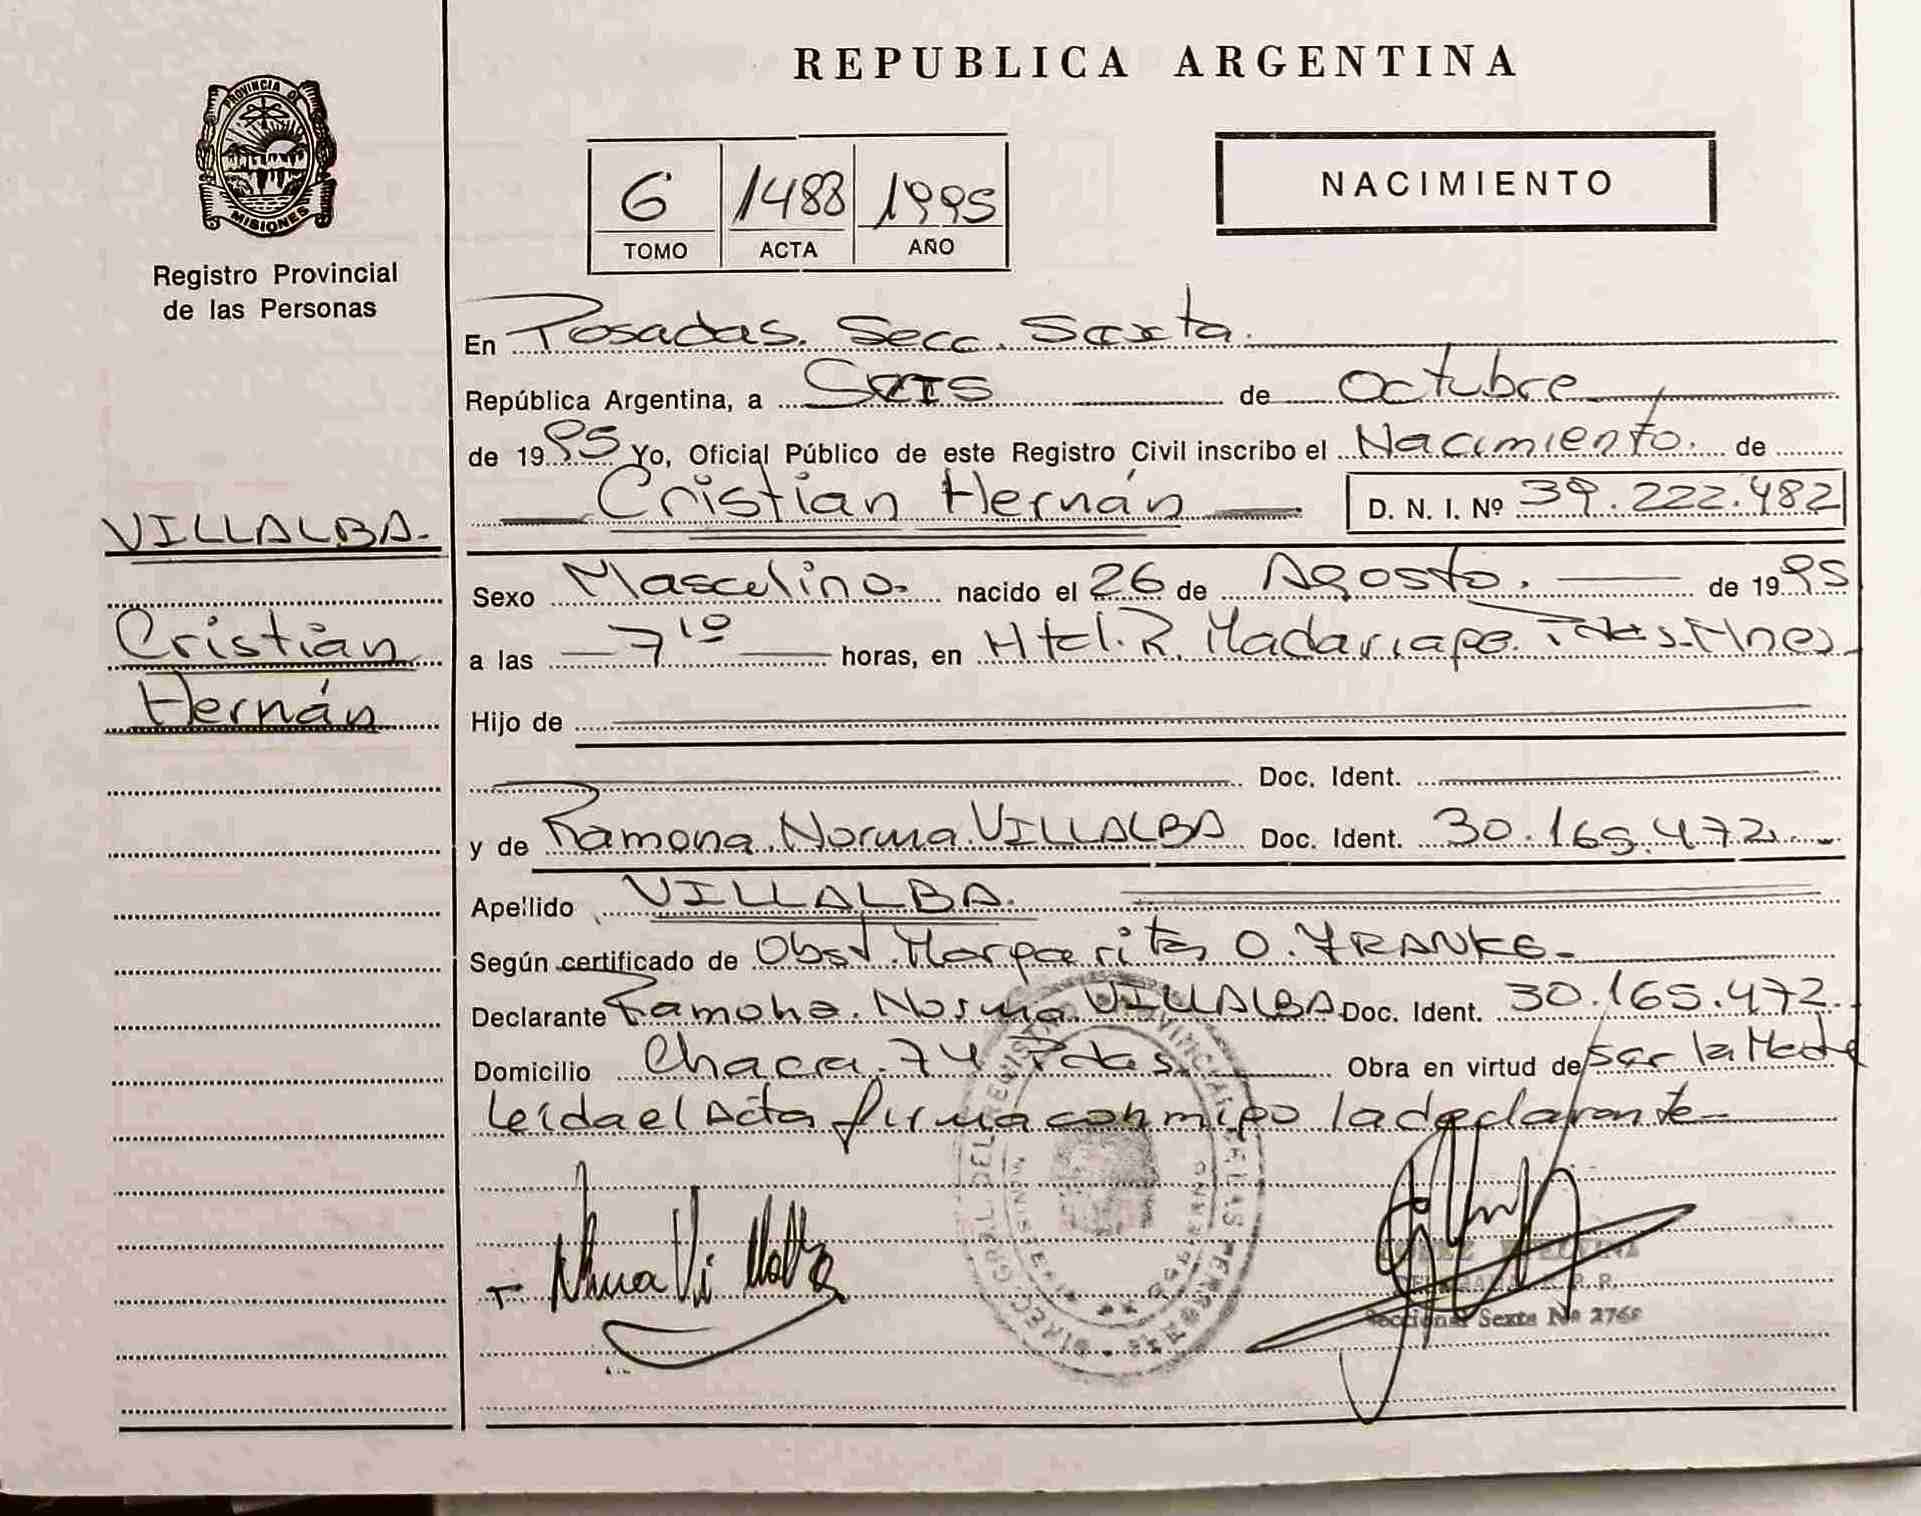 REPUBLICA ARGENTINA
PROVINCIA DE
MISIONES
Registro Provincial
de las Personas
6 1488 1995
TOMO ACTA AÑO
NACIMIENTO
En Posadas. Secc. Sexta.
República Argentina, a Seis de octubre
de 1995 Yo, Oficial Público de este Registro Civil inscribo el Nacimiento. de
Cristian Hernán D. N. I. Nº 39.222.482
VILLALBA.
Cristian
Hernán
Sexo Masculino. nacido el 26 de Agosto. de 1995
a las 7 10 horas, en Htal. R. Madariaga. Pdas. Mnes
Hijo de
Doc. Ident.
y de Ramona Norma VILLALBA Doc. Ident. 30.165.472
Apellido VILLALBA.
Según certificado de Obst. Margarita O. FRANKE.
Declarante Ramona Norma VILLALBA Doc. Ident. 30.165.472.
Domicilio Chacra. 74 Pdas. Obra en virtud de ser la Madre
Leída el Acta firma conmigo la declarante
Seccional Sexta Nº